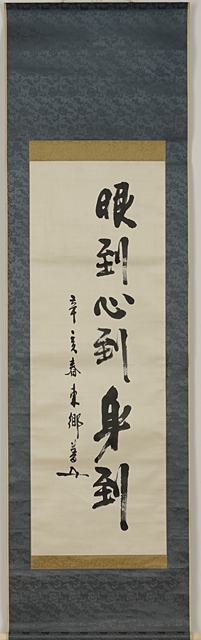 眼到心到身到
辛亥春東郷